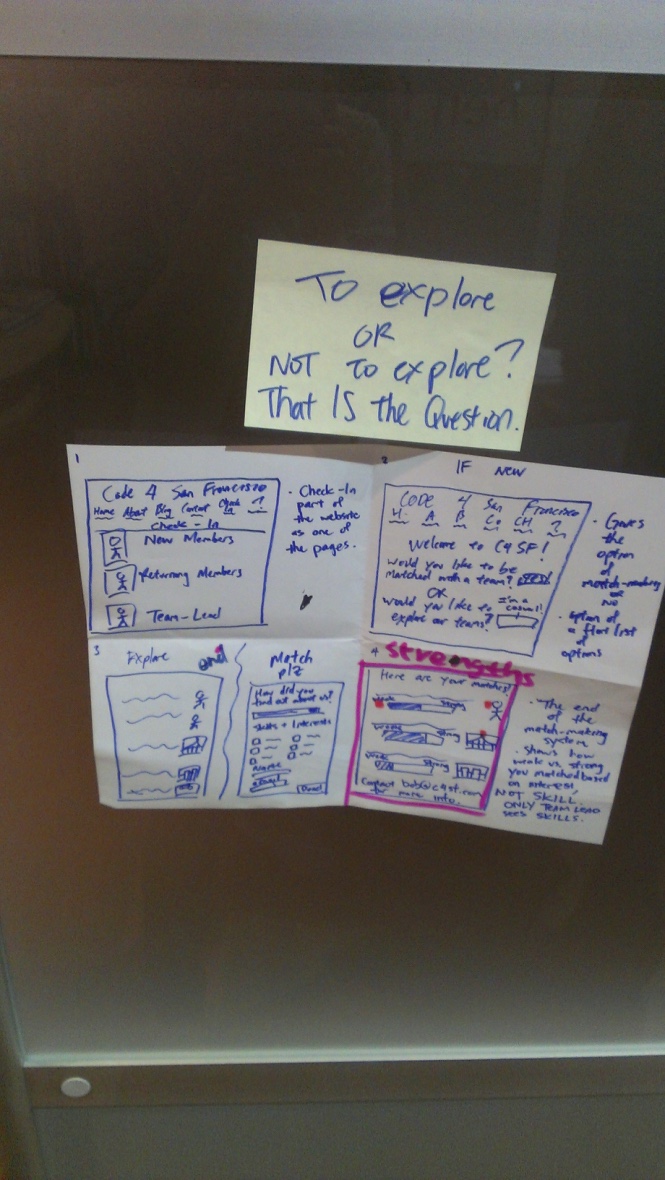 To explore
OR
NOT to explore?
That IS the Question.
1
Code 4 San Francisco
Home About Blog Contact Check In ?
Check-In
New Members
Returning Members
Team-Lead
• Check-In
part of
the website
as one of
the pages.
2
IF NEW
CODE 4 San Francisco
H. A B Co CH ?
Welcome to C4SF!
would you like to be
matched with a team? YES!
OR
would you like to
explore our teams?
I'm a
casual!
• Gives
the
option
of
match-making
or
No
• Option of
a flat list
of
options
3
Explore
and
Match
plz
How did you
find out about us?
Skills + Interests
Name
Email
Done!
4
strengths
Here are your matches!
weak strong
weak strong
weak strong
Contact bob@c4sf.com
for more info.
• The end
of the
match-making
system
• Shows how
weak vs. strong
you matched based
on interest,
NOT SKILL.
ONLY TEAM LEAD
sees SKILLS.